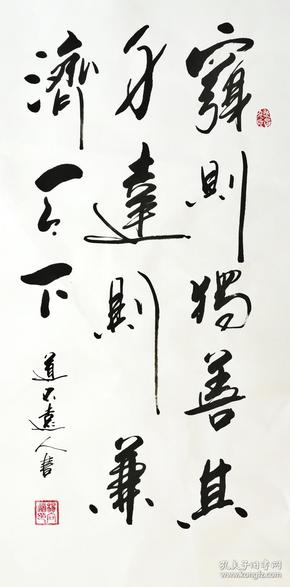 窮則獨善其
身達則兼
濟天下
道不遠人書
孔夫子旧书网